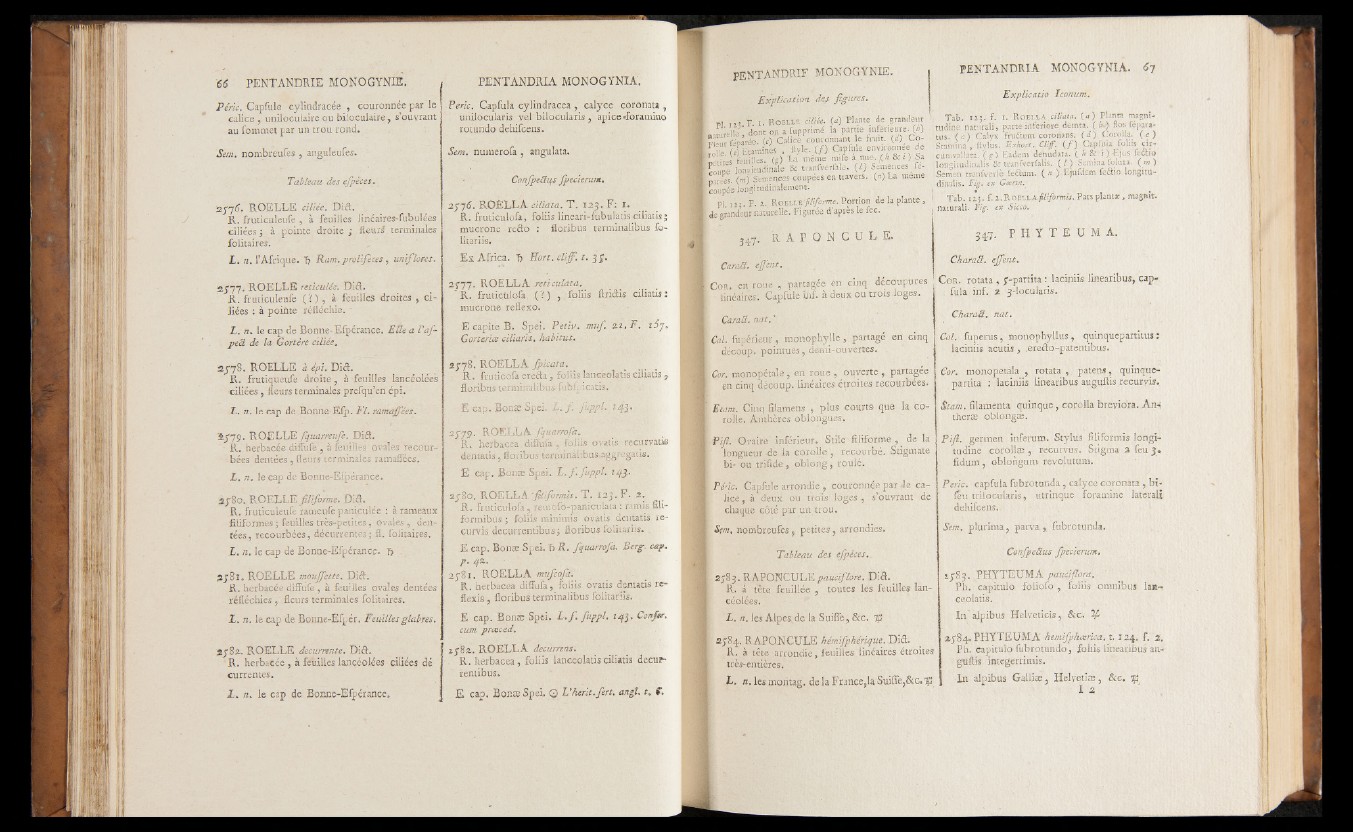 66 PENTANDRIE MONOGYNIE.
Péric. Capſule cylindracée , couronnée par le
calice , uniloculaire ou biloculaire, s'ouvrant
au ſommet par un trou rond.
Sem. nombreuſes , anguleuſes.
Tableau des eſpèces.
2576. ROELLE ciliée. Dict.
R. fruticuleuſe , à feuilles linéaires-ſubulées
ciliées ; à pointe droite ; fleurs terminales
ſolitaires.
L. n. l'Afrique. ♄ Ram. prolifères , uniflores.
2577. ROELLE réticulée. Dict.
R. fruticuleuſe (?), à feuilles droites , ci-
liées : à pointe réfléchie.
L. n. le cap de Bonne-Eſpérance. Elle a l'aſ-
pect de la Gortère ciliée.
2578. ROELLE à épi. Dict.
R. frutiqueuſe droite , à feuilles lancéolées
ciliées , fleurs terminales preſqu'en épi.
L. n. le cap de Bonne Eſp. Fl. ramaſſées.
2579. ROELLE ſquarreuſe. Dict.
R. herbacée diffuſe , à feuilles ovales recour-
bées dentées, fleurs terminales ramaſſées.
L. n. le cap de Bonne-Eſpérance.
2580. ROELLE filiforme. Dict.
R. fruticuleuſe rameuſe paniculée : à rameaux
filiformes ; feuilles très-petites , ovales , den-
tées, recourbées, décurrentes ; fl. ſolitaires.
L. n. le cap de Bonne-Eſpérance. ♄
2581. ROELLE mouſſette. Dict.
R. herbacée diffuſe , à feuilles ovales dentées
réfléchies , fleurs terminales ſolitaires.
L. n. le cap de Bonne-Eſpér. Feuilles glabres.
2582. ROELLE decurrente. Dict.
R. herbacée , à feuilles lancéolées ciliées dé
currentes.
L. n. le cap de Bonne-Eſpérance.
PENTANDRIA MONOGYNIA.
Peric. Capſula cylindracea , calyce coronata ,
unilocularis vel bilocularis , apice foramino
rotundo dehiſcens.
Sem. numeroſa , angulata.
Conſpectus ſpecierum.
2576. ROELLA ciliata. T. 123. F. 1.
R. fruticuloſa, foliis lineari-ſubulatis ciliatis ;
mucrone recto : floribus terminalibus ſo-
litariis.
Ex Africa. ♄ Hort. cliff. t. 35.
2577. ROELLA reticulata.
R. fruticuloſa (?) , foliis ſtrictis ciliatis :
mucrone reflexo.
E capite B. Spei. Petiv. muſ. 21. F. 157.
Gorteriæ ciliaris, habitus.
2578. ROELLA ſpicata.
R. fruticoſa erecta , foliis lanceolatis ciliatis ,
floribus terminalibus ſubſpicatis.
E cap. Bonæ Spei. L. f. ſuppl. 143.
2579. ROELLA ſquarroſa.
R. herbacea diffuſa , foliis ovatis recurvatis
dentatis, floribus terminalibus aggregatis.
E cap. Bonæ Spei. L. f. ſuppl. 143.
2580. ROELLA filiformis. T. 123. F. 2.
R. fruticuloſa, ramoſo-paniculata : ramis fili-
formibus ; foliis minimis ovatis dentatis re-
curvis decurrentibus ; floribus ſolitariis.
E cap. Bonæ Spei. ♄ R. ſquarroſa. Berg. cap.
p. 42.
2581. ROELLA muſcoſa.
R. herbacea diffuſa, foliis ovatis dentatis re-
flexis , floribus terminalibus ſolitariis.
E cap. Bonæ Spei. L. f. ſuppl. 143. Confer.
cum præced.
2582. ROELLA decurrens.
R. herbacea , foliis lanceolatis ciliatis decur-
rentibus.
E cap. Bonæ Spei. ☉ L'herit. ſert. angl. t. 6.
PENTANDRIE MONOGYNIE.
Explication des figures.
Pl. 123. F. 1. ROELLE ciliée. (a) Plante de grandeur
naturelle , dont on a ſupprimé la partie inférieure. (b)
Fleur ſéparée. (c) Calice couronnant le fruit. (d) Co-
rolle. (e) Etamines , ſtyle. (f) Capſule environnée de
petites feuilles. (g) La même miſe à nue. (h & i) Sa
coupe longitudinale & tranſverſale. (l) Semences ſé-
parées. (m) Semences coupées en travers. (n) La même
coupée longitudinalement.
Pl. 123. F. 2. ROELLE filiforme. Portion de la plante ,
de grandeur naturelle. Figurée d'après le ſec.
347. RAPONCULE.
Caract. eſſent.
COR. en roue , partagée en cinq découpures
linéaires. Capſule inf. à deux ou trois loges.
Caract. nat.
Cal. ſupérieur , monophylle , partagé en cinq
découp. pointues, demi-ouvertes.
Cor. monopétale , en roue , ouverte , partagée
en cinq découp. linéaires étroites recourbées.
Etam. Cinq filamens , plus courts que la co-
rolle. Anthères oblongues.
Piſt. Ovaire inférieur. Stile filiforme , de la
longueur de la corolle , recourbé. Stigmate
bi- ou trifide , oblong , roulé.
Péric. Capſule arrondie , couronnée par le ca-
lice , à deux ou trois loges , s'ouvrant de
chaque côté par un trou.
Sem. nombreuſes , petites , arrondies.
Tableau des eſpèces.
2583. RAPONCULE pauciflore. Dict.
R. à tête feuillée , toutes les feuilles lan-
céolées.
L. n. les Alpes de la Suiſſe, &c. ♃
2584. RAPONCULE hémiſphérique. Dict.
R. à tête arrondie , feuilles linéaires étroites
très-entières.
L. n. les montag. de la France, la Suiſſe, &c. ♃
PENTANDRIA MONOGYNIA. 67
Explicatio Iconum.
Tab. 123. f. 1. ROELLA ciliata. (a) Planta magni-
tudine naturali, parte inferiore demta. (b) flos ſepara-
tus. (c) Calyx fructum coronans. (d) Corolla. (e)
Stamina , ſtylus. Exhort. Cliff. (f) Capſula foliis cir-
cumvallata. (g) Eadem denudata. (h & i) Ejus ſectio
longitudinalis & tranſverſalis. (l) Semina ſoluta. (m)
Semen tranſverſè ſectum. (n) Ejuſdem ſectio longitu-
dinalis. Fig. ex Gærtn.
Tab. 123. f. 2. ROELLA filiformis. Pars plantæ , magnit.
naturali. Fig. ex Sicco.
347. PHYTEUMA.
Charact. eſſent.
COR. rotata , 5-partita : laciniis linearibus, cap-
ſula inf. 2 3-locularis.
Charact. nat.
Cal. ſuperus , monophyllus , quinquepartitus :
laciniis acutis , erecto-patentibus.
Cor. monopetala , rotata , patens, quinque-
partita : laciniis linearibus anguſtis recurvis.
Stam. filamenta quinque , corolla breviora. An-
theræ oblongæ.
Piſt. germen inferum. Stylus filiformis longi-
tudine corollæ , recurvus. Stigma 2 ſeu 3-
fidum , oblongum revolutum.
Peric. capſula ſubrotunda , calyce coronata , bi-
ſeu trilocularis , utrinque foramine laterali
dehiſcens.
Sem. plurima , parva , ſubrotunda.
Conſpectus ſpecierum.
2583. PHYTEUMA pauciflora.
Ph. capitulo folioſo , foliis omnibus lan-
ceolatis.
In alpibus Helveticis , &c. ♃
2584. PHYTEUMA hemiſphærica. t. 124. f. 2.
Ph. capitulo ſubrotundo , foliis linearibus an-
guſtis integerrimis.
In alpibus Galliæ , Helvetiæ , &c. ♃
I 2